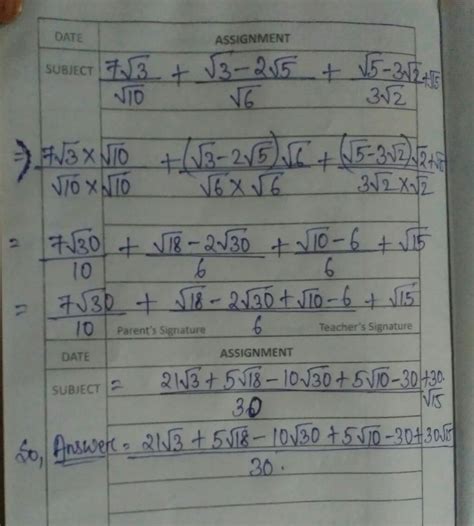 DATE ASSIGNMENT
SUBJECT 7√3/√10 + √3-2√5/√6 + √5-3√2/3√2 + √15
⇒ 7√3×√10/√10×√10 + (√3-2√5)√6/√6×√6 + (√5-3√2)√2/3√2×√2 +
= 7√30/10 + √18-2√30/6 + √10-6/6 + √15
= 7√30/10 + √18-2√30+√10-6/6 + √15
Parent's Signature Teacher's Signature
DATE ASSIGNMENT
SUBJECT = 21√3+5√18-10√30+5√10-30+30√15/30
So, Answer = 21√3+5√18-10√30+5√10-30+30√15/30.